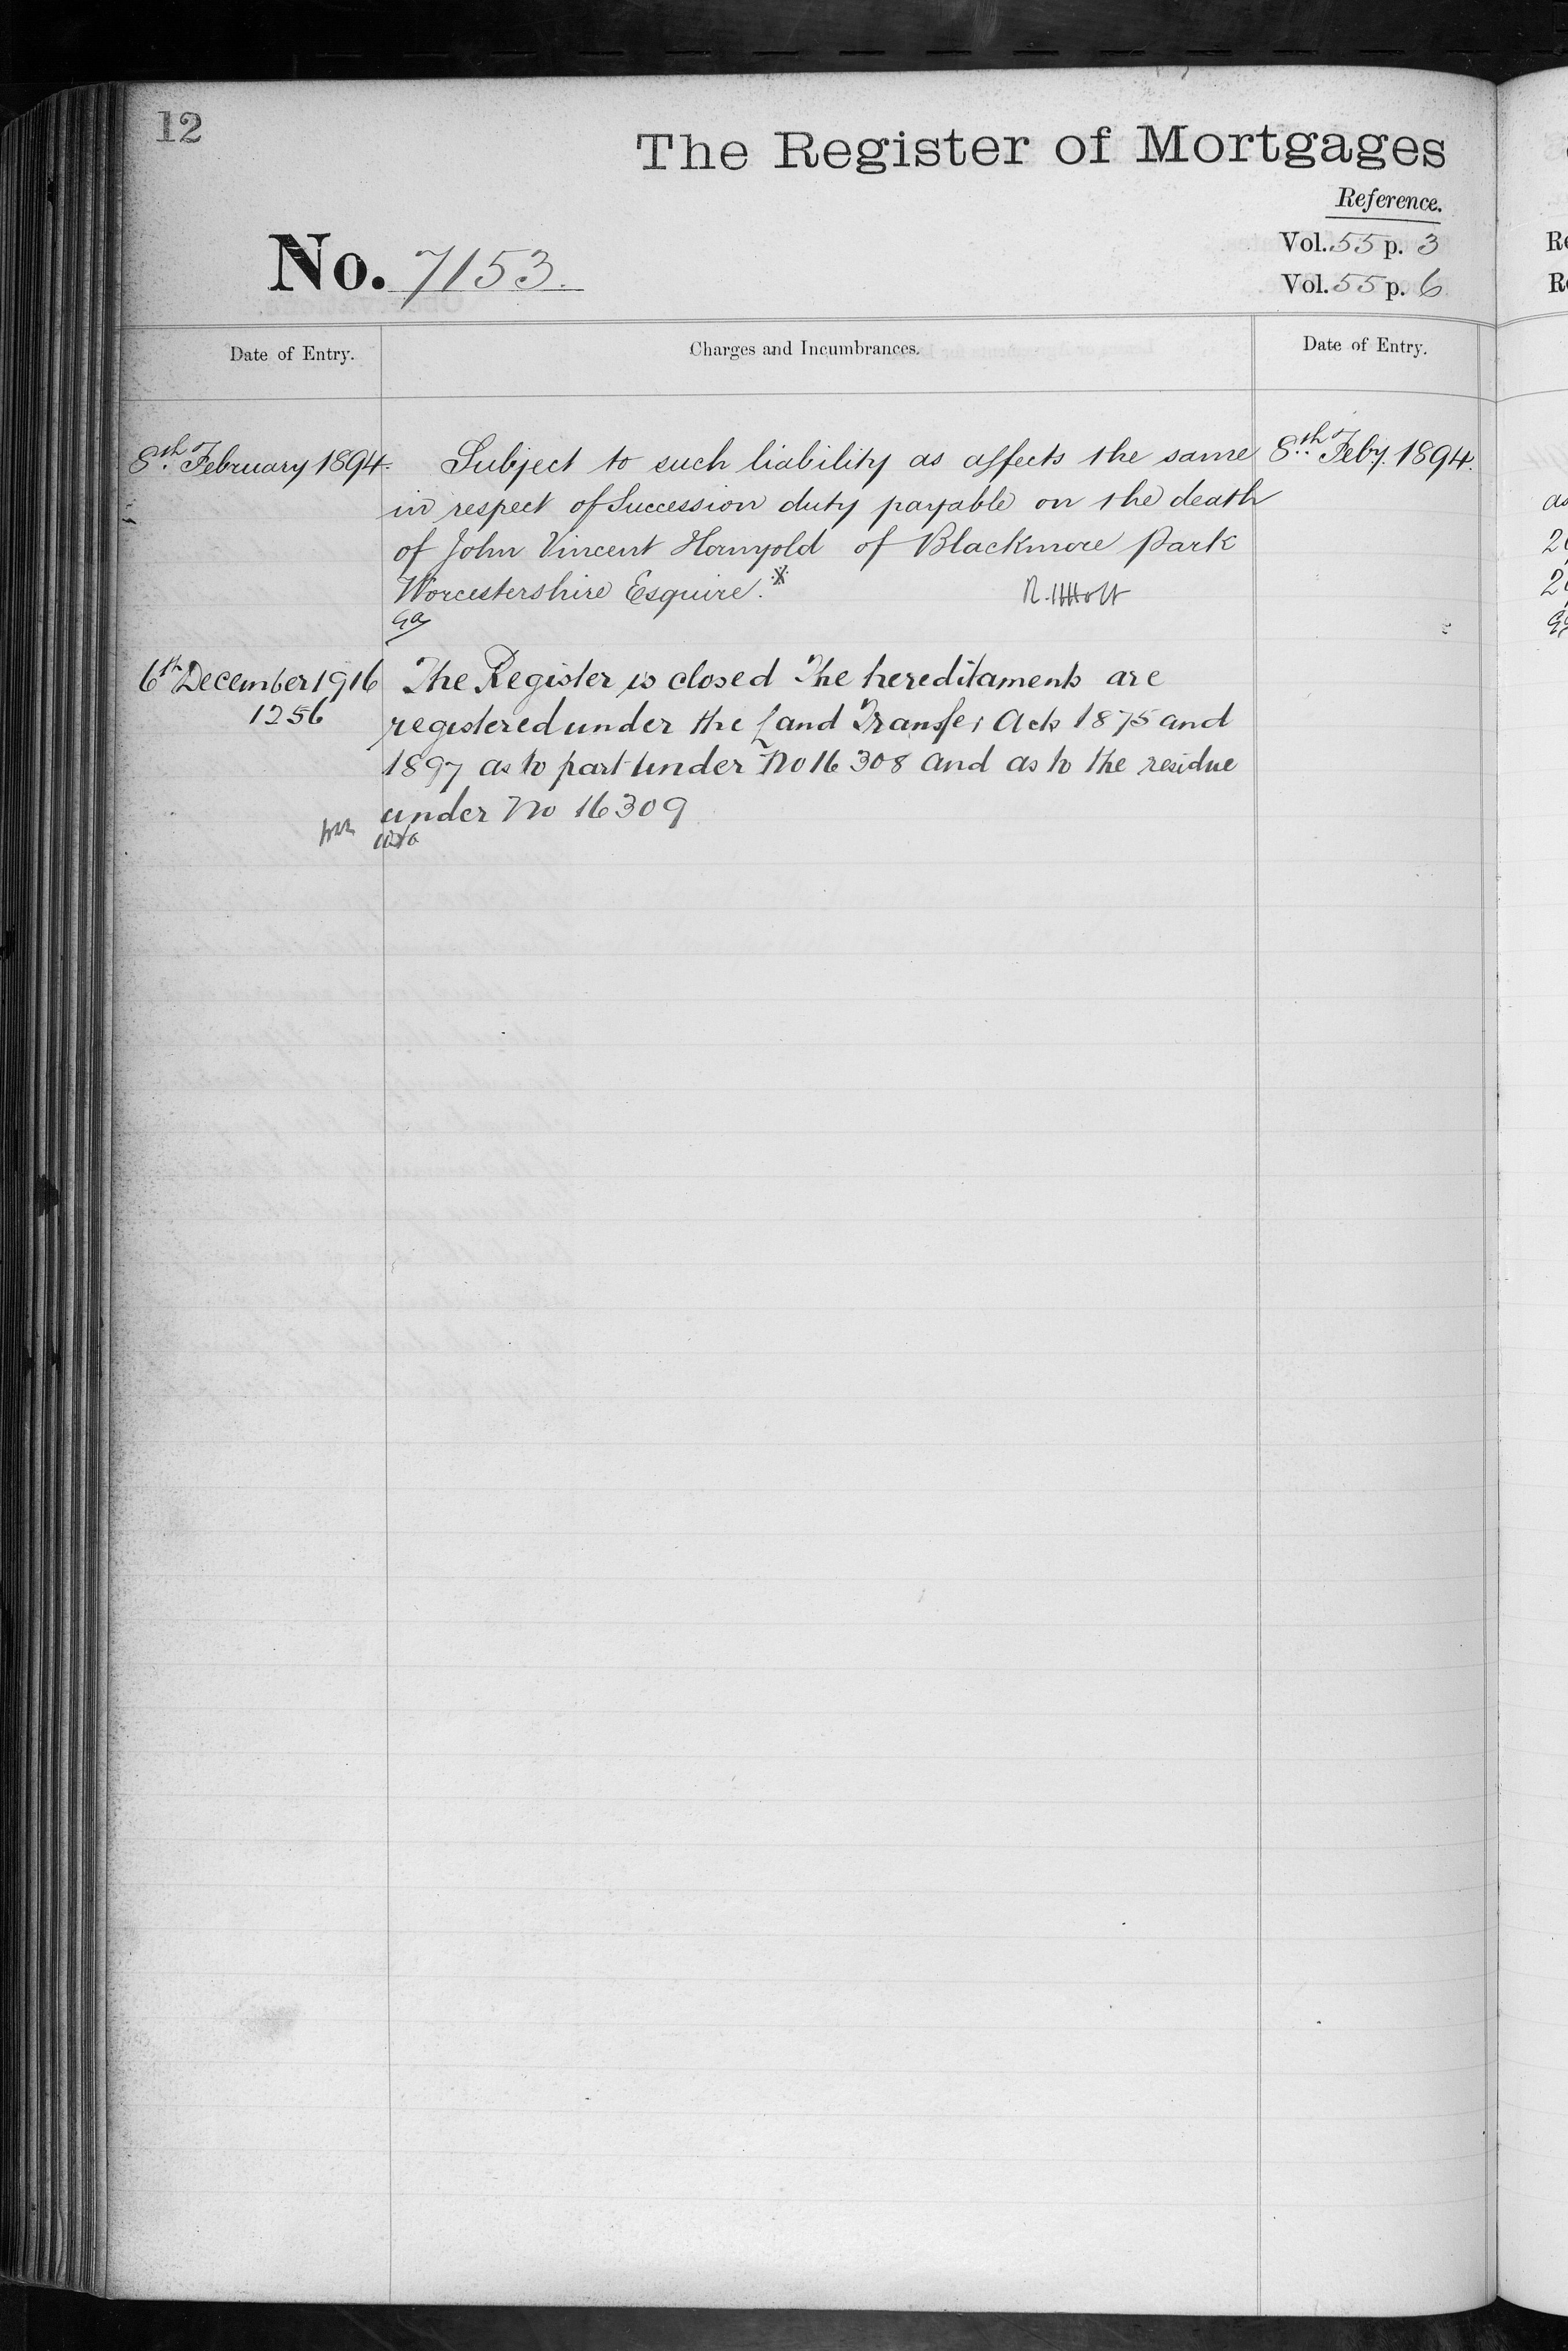 12
The Register of Mortgages
Reference.
No. 7153.
Vol. 55 p. 3
Vol. 55 p. 6
Date of Entry.
Charges and Incumbrances.
Date of Entry.
8th February 1894.
Subject to such liability as affects the same
in respect of Succession duty payable on the death
of John Vincent Hornyold of Blackmore Park
Worcestershire Esquire.
R.HHolt
8th Feby. 1894.
6th December 1916
1256
The Register is closed The hereditaments are
registered under the Land Transfer Acts 1875 and
1897 as to part under No 16308 and as to the residue
under No 16309